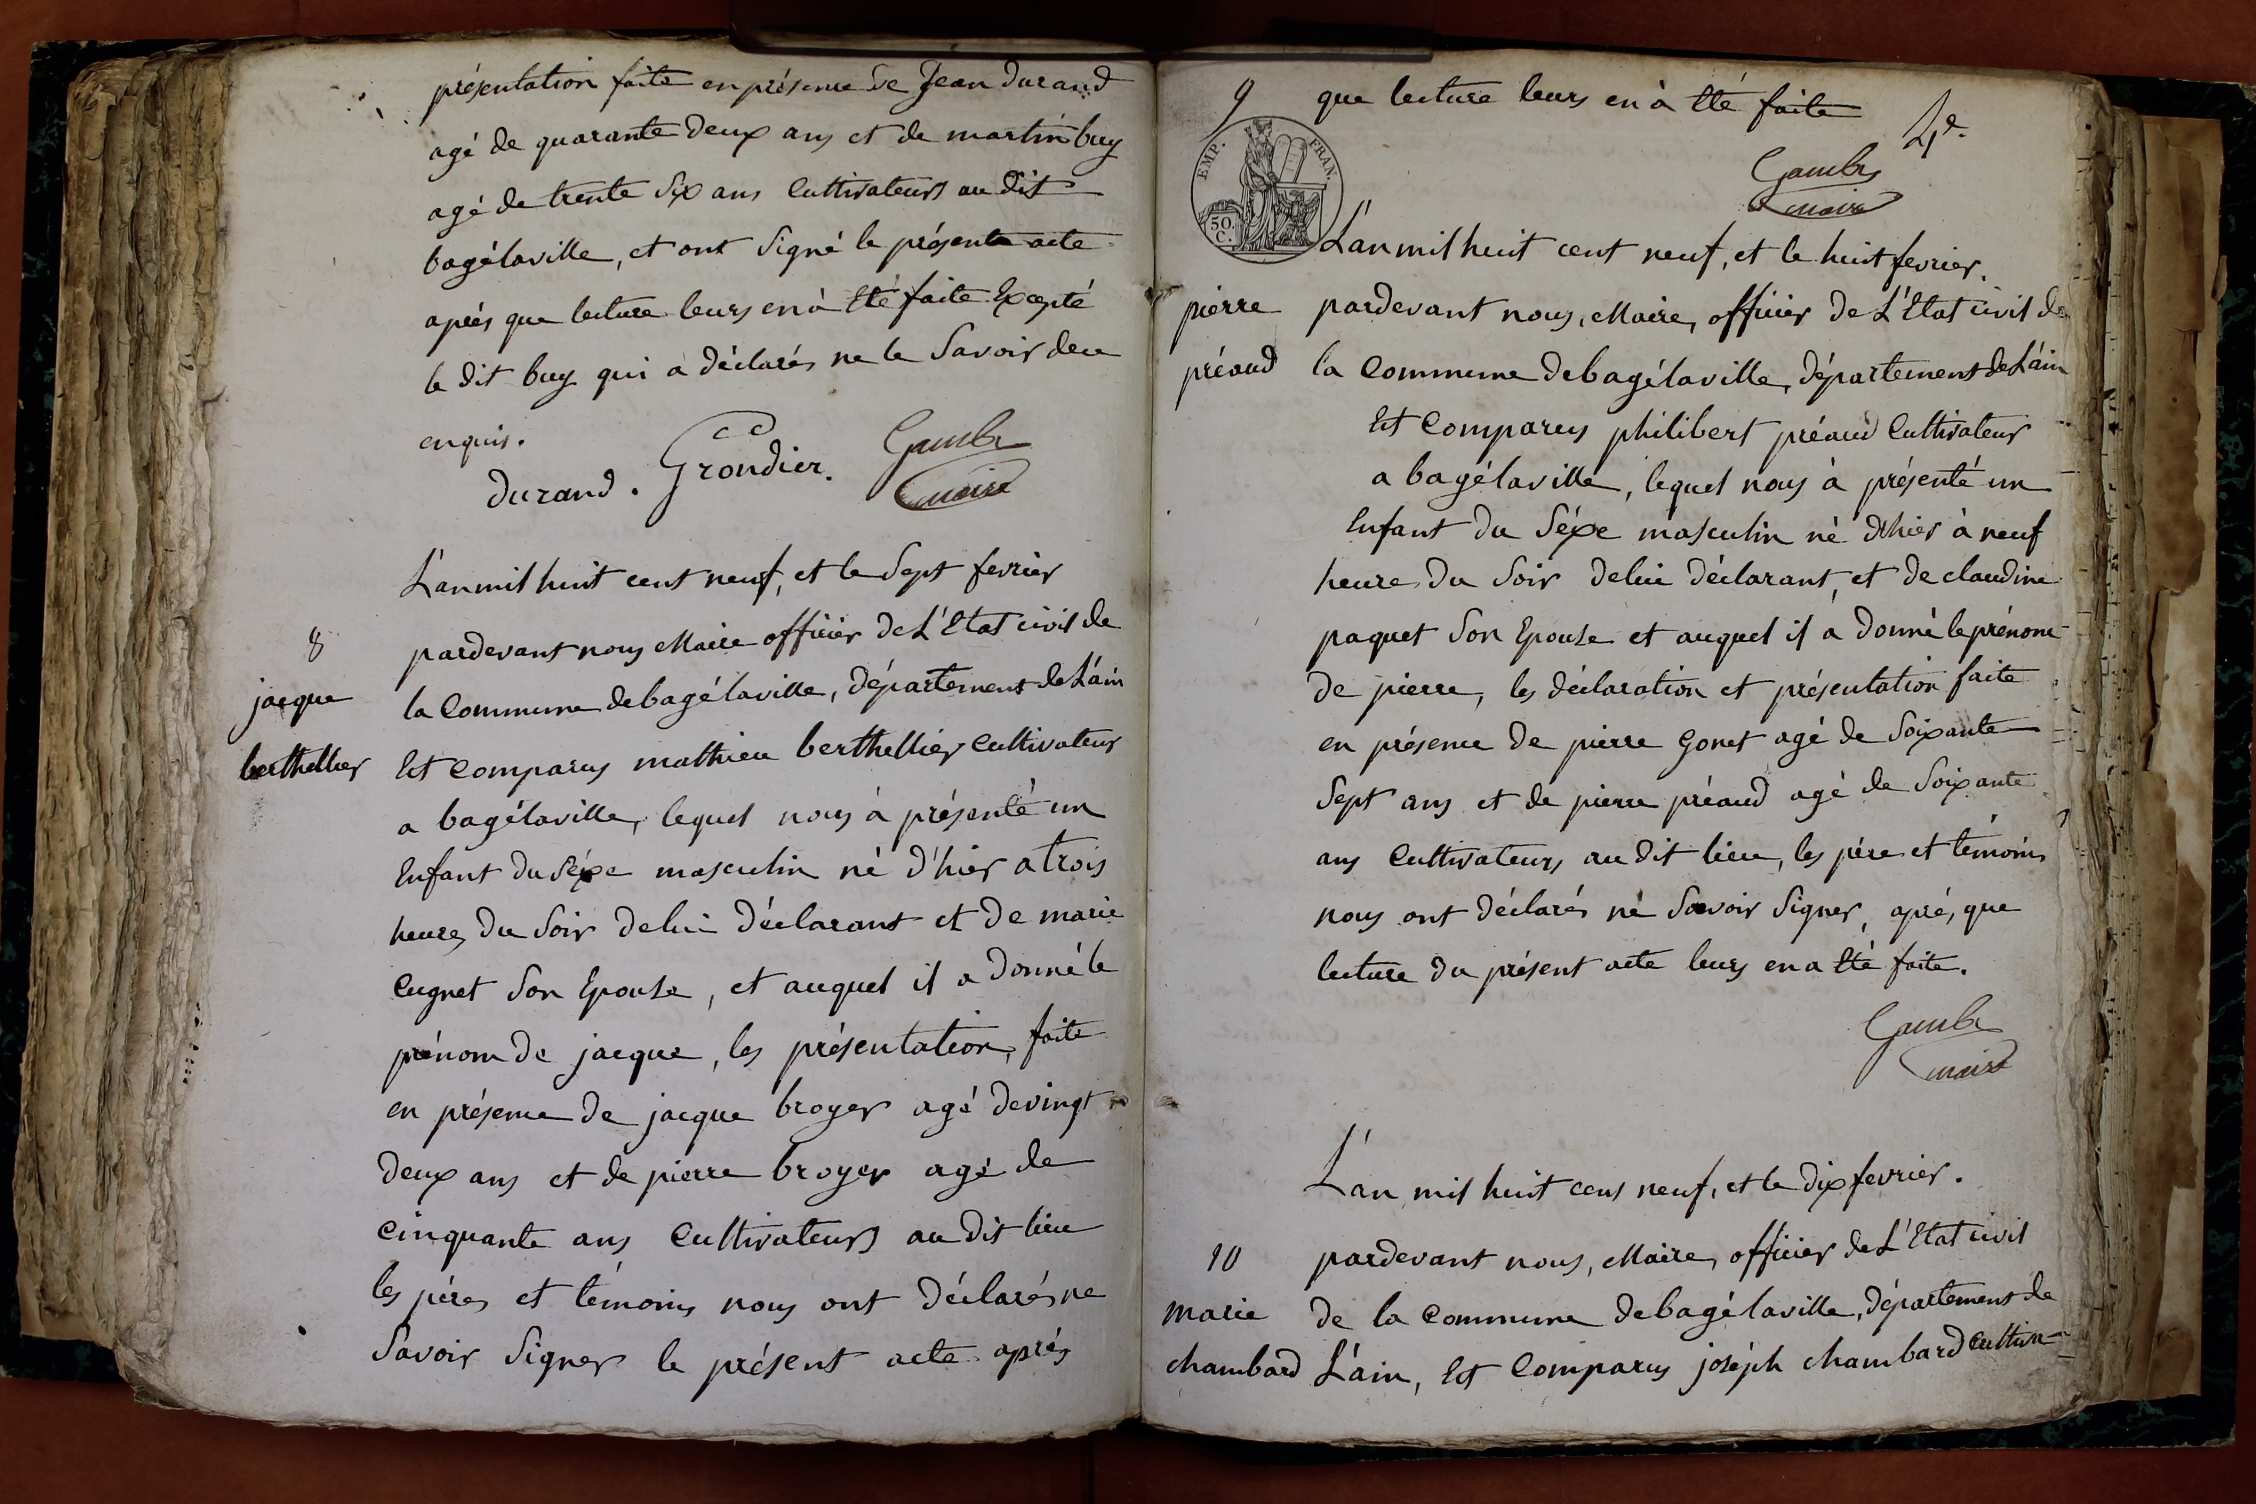 présentation faite en présence de Jean durand
agé de quarante deux ans et de martin buy
agé de trente six ans Cultivateurs au dit
bagélaville, et ont signé le présente acte
après que lecture leurs en à Eté faite Excepté
le dit buy qui a déclarés ne le Savoir de ce
enquis.
durand. Grondier. Gambe
maire
L'an mil huit cent neuf, et le Sept fevrier
8
pardevant nous Maire officier de L'Etat civil de
jacque
la Commune de bagélaville, département de L'ain
berthellier
Est Comparus mathieu berthellier Cultivateur
a bagélaville, lequel nous à présenté un
Enfant du séxe masculin né d'hier a trois
heures du Soir de lui déclarant et de marie
Cugnet Son Epouse, et auquel il a donné le
prénom de jacque, les présentation, faite
en présence de jacque broyer agé de vingt
deux ans et de pierre broyer agé de
Cinquante ans Cultivateurs au dit lieu
les pères et témoins nous ont déclarés ne
Savoir Signer le présent acte après
9
que lecture leurs en à Eté faite
4e.
Gambe
maire
EMP. FRAN.
50 C.
L'an mil huit cent neuf, et le huit fevrier.
pierre
pardevant nous, Maire, officier de L'Etat civil de
préaud
la Commune de bagélaville, département de L'ain
Est Comparus philibert préaud Cultivateur
a bagélaville, lequel nous à présenté un
Enfant du Séxe masculin né d'hier à neuf
heure du Soir de lui déclarant, et de claudine
paquet Son Epouse et auquel il a donné le prénom
de pierre, les déclaration et présentation faite
en présence de pierre gonet agé de Soixante
Sept ans et de pierre préaud agé de Soixante
ans Cultivateurs au dit lieu, les père et témoins
nous ont déclarés né Savoir Signer, après que
lecture du présent acte leurs en a Eté faite.
Gambe
maire
L'an mil huit cens neuf, et le dix fevrier.
10
pardevant nous, Maire, officier de L'Etat civil
Marie
de la Commune de bagélaville, département de
chambard
L'ain, Est Comparus joséph chambard Cultiva-